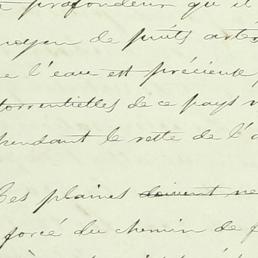 profondeur qu'il
moyen de puits arté
e l'eau est précieuse
torrentielles de ce pays
pendant le reste de l'a
Ces plaines doivent ne
forcé du chemin de f